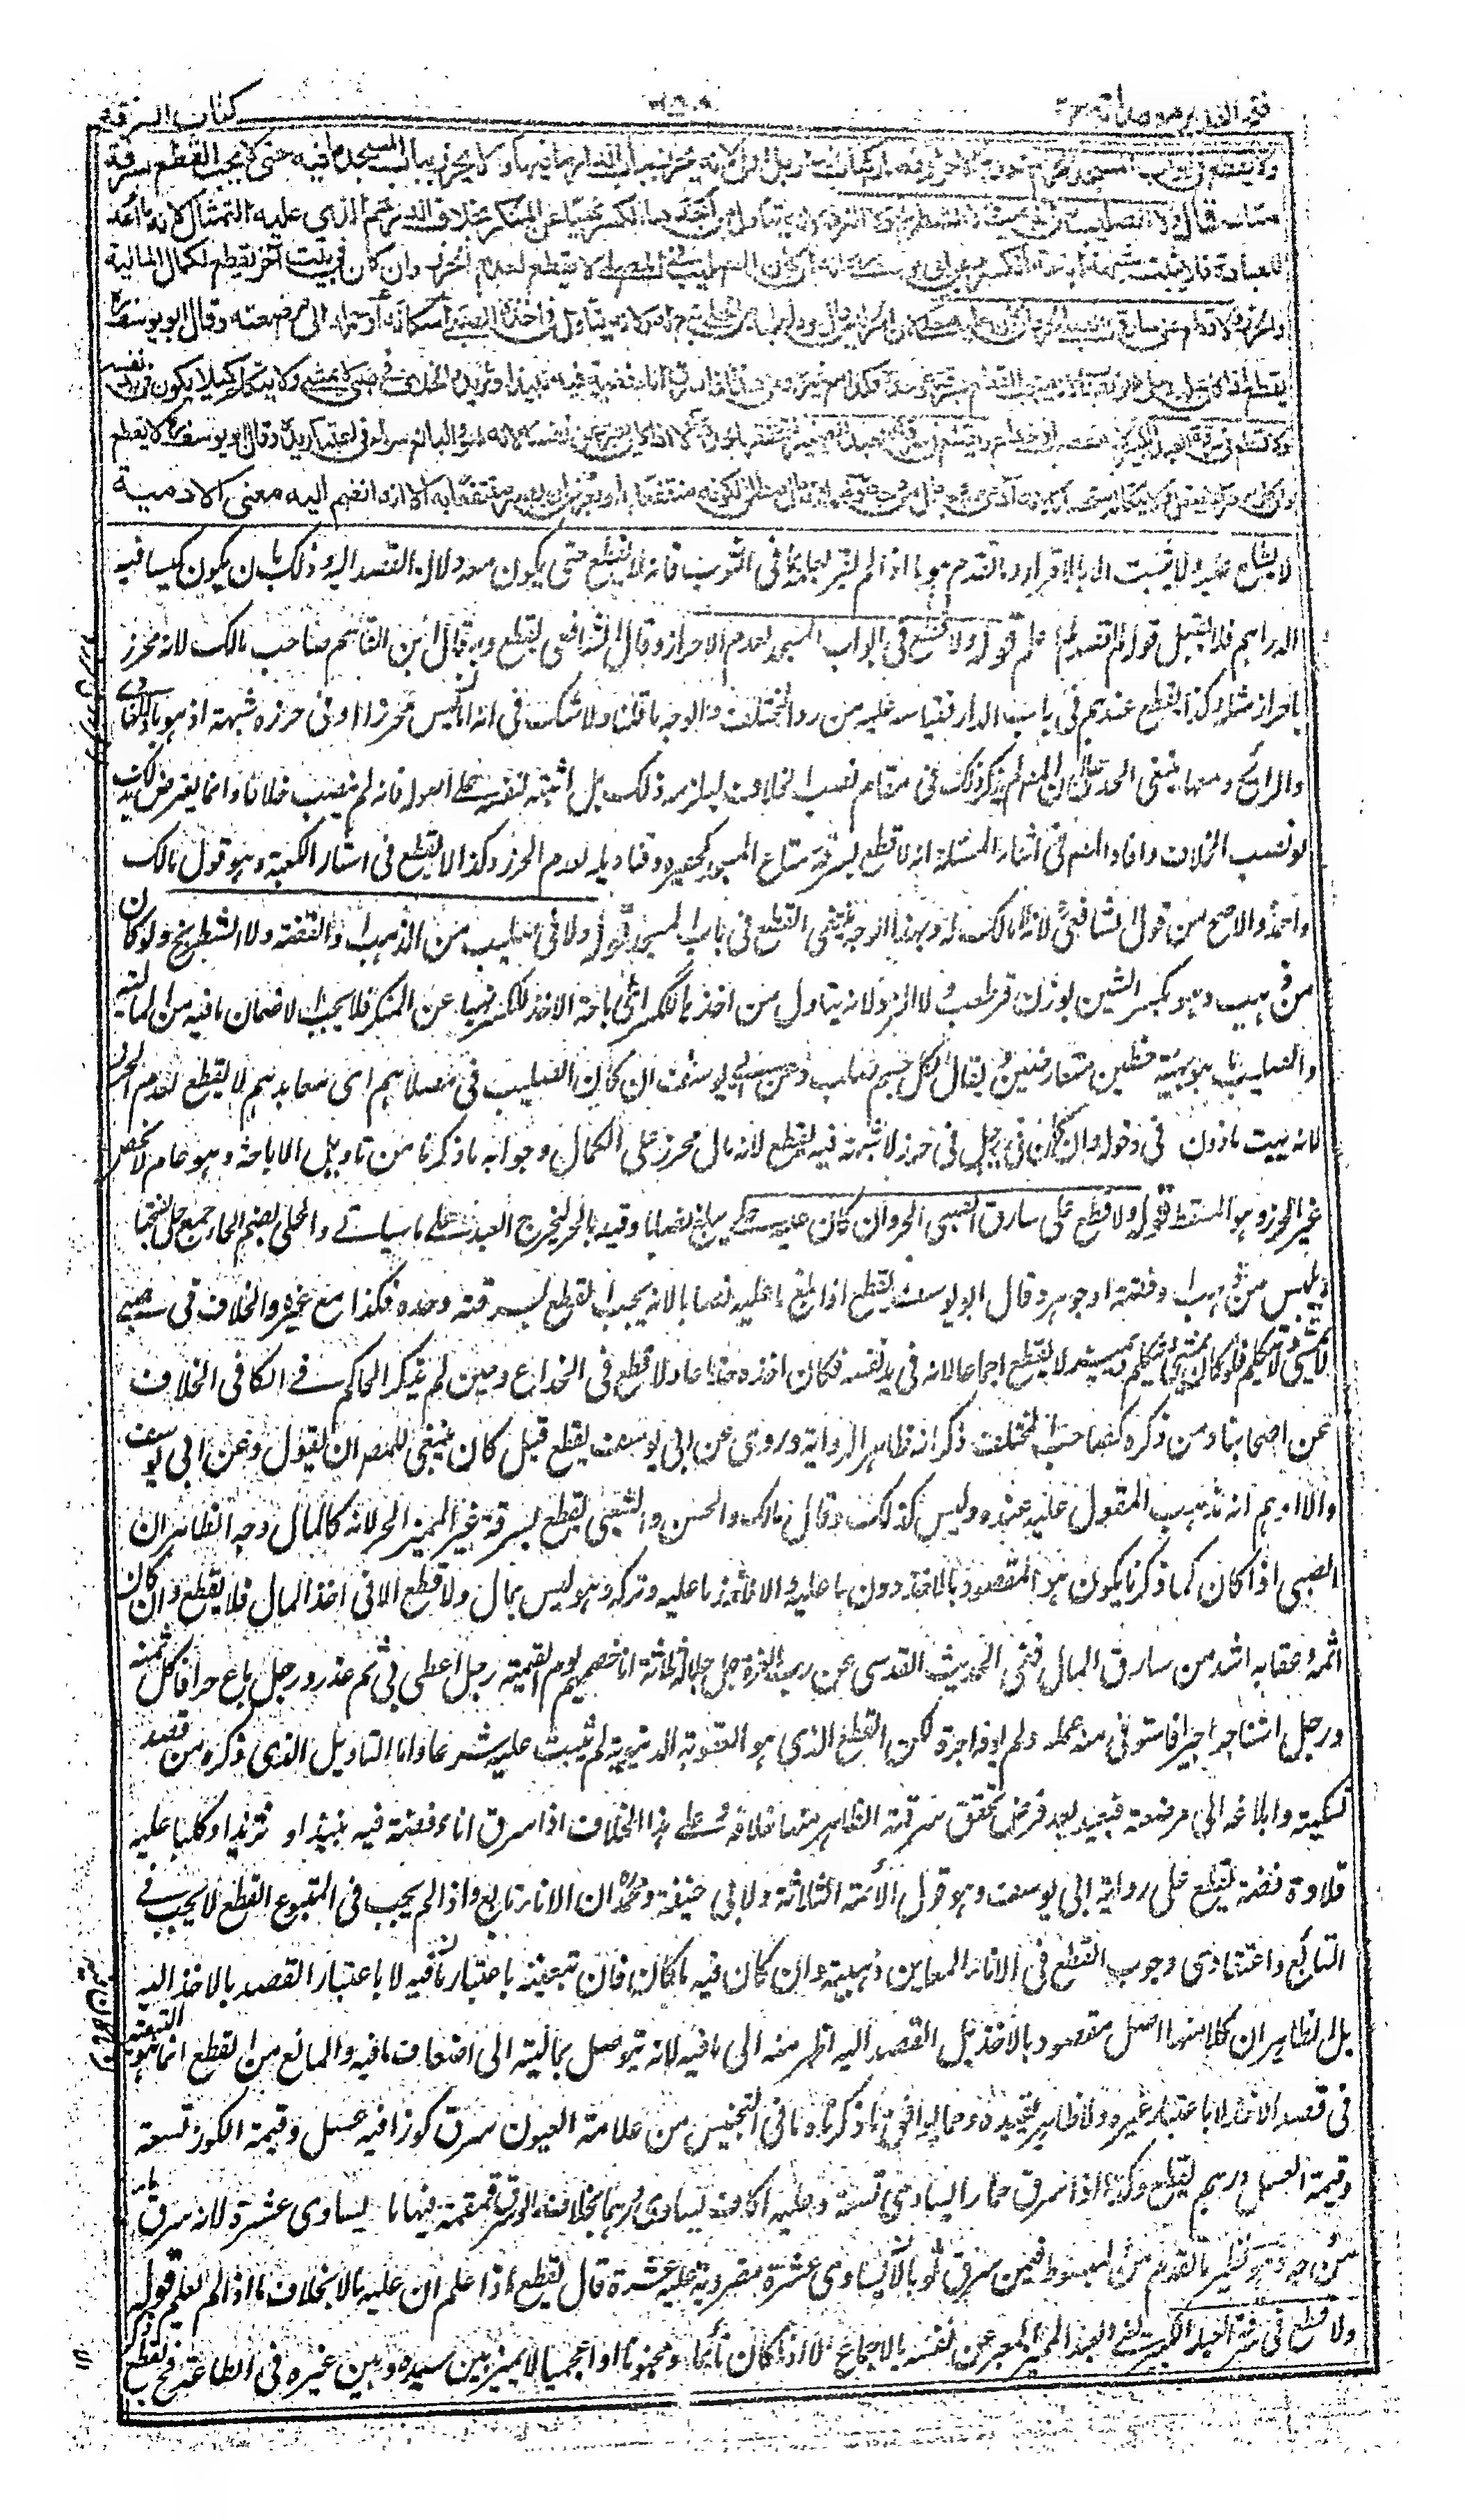 كتاب السرقة
ولا يقطع في ابواب المسجد الحرام لعدم الاحراز فصار كباب الدار بل اولى لانه يحرز بباب الدار ما فيها ولا يحرز بباب المسجد ما فيه حتى لا يجب القطع بسرقة
متاعه قال ولا الصليب من الذهب ولا الشطرنج ولا النرد لانه يتاول من اخذها الكسر نهيا عن المنكر بخلاف الدرهم الذي عليه التمثال لانه ما اعد
للعبادة فلا تثبت شبهة اباحة الكسر وعن ابي يوسف انه ان كان الصليب في المصلى لا يقطع لعدم الحرز وان كان في بيت آخر يقطع لكمال المالية
والحرز ولا قطع على سارق الصبي الحر وان كان عليه حلي لان الحر ليس بمال وما عليه من الحلي تبع له ولانه يتاول في اخذه الصبي اسكاته او حمله الى مرضعته وقال ابو يوسف
يقطع اذا كان عليه حلي هو نصاب لانه يجب القطع بسرقته وحده فكذا مع غيره وعلى هذا اذا سرق اناء فضة فيه نبيذ او ثريد والخلاف في صبي لا يمشي ولا يتكلم كيلا يكون في يد نفسه
ولا قطع في سرقة العبد الكبير لانه غصب او خداع ويقطع في سرقة العبد الصغير لتحققها بحدها الا اذا كان يعبر عن نفسه لانه هو والبالغ سواء في اعتبار يده وقال ابو يوسف لا يقطع
وان كان صغيرا لا يعقل ولا يتكلم استحسانا لانه آدمي من وجه مال من وجه ولهما انه مال مطلق لكونه منتفعا به او بعرض ان يصير منتفعا به الا انه انضم اليه معنى الآدمية
لا يطلع عليه ولا يثبت الا بالاقرار وما تقدم هو ما اذا لم يقر بعلمه بما في الثوب فانه لا يقطع حتى يكون معه دلالة القصد اليه وذلك بان يكون كيسا فيه
الدراهم فلا يقبل قوله لم اقصد لم اعلم قوله ولا قطع في ابواب المسجد لعدم الاحراز وقال الشافعي يقطع وبه قال ابن القاسم صاحب مالك لانه محرز
باحراز مثله وكذا يقطع عندهم في باب الدار فقياسه عليه من رد المختلف والوجه ما قلنا ولا شك في انه ليس محرزا او في حرزه شبهة اذ هو باد للغادي
والرائح ومنها ينبغي الحد لم يذكر ذلك في مقام نصب الخلاف ليلزمه ذلك بل اثبته لنفسه على اصوله فانه لم ينصب خلافا وانما يعترض بذلك
لو نصب الخلاف وافاد المصنف في اثناء المسئلة انه لا قطع بسرقة متاع المسجد كحصيره وقناديله لعدم الحرز وكذا لا يقطع في استار الكعبة وهو قول مالك
واحمد والاصح من قول الشافعي لانه لا مالك له وبهذا الوجه ينتفي القطع في باب المسجد قوله ولا في صليب من الذهب او الفضة ولا الشطرنج ولو كان
من ذهب وهو بكسر الشين بوزن قرطعب ولا النرد لانه يتاول من اخذها الكسر اي اباحة الاخذ للكسر نهيا عن المنكر فلا يجب الا ضمان ما فيه من المالية
والصليب ما هو بهيئة خطين متقاطعين ويقال لكل جسم صليب وعن ابي يوسف ان كان الصليب في مصلاهم اي معابدهم لا يقطع لعدم الحرز
لانه بيت ماذون في دخوله وان كان في يد رجل في حرز لا شبهة فيه يقطع لانه مال محرز على الكمال وجوابه ما ذكرنا من تاويل الاباحة وهو عام لا يخص
غير المحرز وهو المسقط قوله ولا قطع على سارق الصبي الحر وان كان عليه حلي يبلغ نصابا وقيد بالحر ليخرج العبد على ما سياتي والحلي بضم الحاء جمع حلي بفتحها
ما يلبس من ذهب او فضة او جوهر وقال ابو يوسف يقطع اذا بلغ ما عليه نصابا لانه يجب القطع بسرقته وحده فكذا مع غيره والخلاف في صبي
لا يمشي ولا يتكلم فلو كان يمشي ويتكلم ويميز لا يقطع اجماعا لانه في يد نفسه فكان اخذه خداعا ولا قطع في الخداع وحين لم يذكر الحاكم في الكافي الخلاف
عن اصحابنا ومن ذكره كصاحب المختلف ذكر انه ظاهر الرواية وروي عن ابي يوسف يقطع قيل كان ينبغي للمصنف ان يقول وعن ابي يوسف
والا اوهم انه مذهب المقول عليه عنده وليس كذلك وقال مالك والحسن والشعبي يقطع بسرقة غير المميز الحر لانه كالمال وجه الظاهر ان
الصبي اذا كان كما ذكرنا يكون هو المقصود بالاخذ دون ما عليه والا لاخذ ما عليه وتركه وهو ليس بمال ولا قطع الا في اخذ المال فلا يقطع وان كان
اثمه وعقابه اشد من سارق المال ففي الحديث القدسي عن رب العزة جل جلاله ثلاثة انا خصمهم يوم القيمة رجل اعطى بي ثم غدر ورجل باع حرا فاكل ثمنه
ورجل استاجر اجيرا فاستوفى منه عمله ولم يوفه اجره لكن القطع الذي هو العقوبة الدنيوية لم يثبت عليه شرعا واما التاويل الذي ذكره من قصد
تسكيته وابلاغه الى مرضعة فبعيد بعد فرض تحقق سرقته الظاهر منها خلافه وعلى هذا الخلاف اذا سرق اناء فضة فيه نبيذ او ثريد او كلبا عليه
قلادة فضة يقطع على رواية ابي يوسف وهو قول الائمة الثلاثة ولابي حنيفة ومحمد ان الاناء تابع واذا لم يجب في المتبوع القطع لا يجب في
التابع واعتقادي وجوب القطع في الاناء المعاين ذهبيته وان كان فيه ما كان فان تبعيته باعتبار ما فيه لا باعتبار القصد بالاخذ اليه
بل الظاهر ان كلا منهما اصل مقصود بالاخذ بل القصد اليه اظهر منه الى ما فيه لانه يتوصل بماليته الى اضعاف ما فيه والمانع من القطع انما هو التبعية
في قصد الاخذ لا باعتبار غيره ولا ظاهر يفيده ومما يوافق ما ذكرنا ما في التجنيس من علامة العيون سرق كوزا فيه عسل وقيمة الكوز تسعة
وقيمة العسل درهم يقطع وكذا اذا سرق حمارا يساوي تسعة وعليه اكاف يساوي درهما بخلاف ما لو سرق قمقمة فيها ما يساوي عشرة لانه سرق ماء
من وجه وهو نظير ما تقدم من المبسوط فيمن سرق ثوبا لا يساوي عشرة مصرورة عليه عشرة قال يقطع اذا علم ان عليه مالا بخلاف ما اذا لم يعلم قوله
ولا قطع في سرقة العبد الكبير يعني العبد المميز المعبر عن نفسه بالاجماع الا اذا كان نائما او مجنونا او اعجميا لا يميز بين سيده وبين غيره في الطاعة فح يقطع